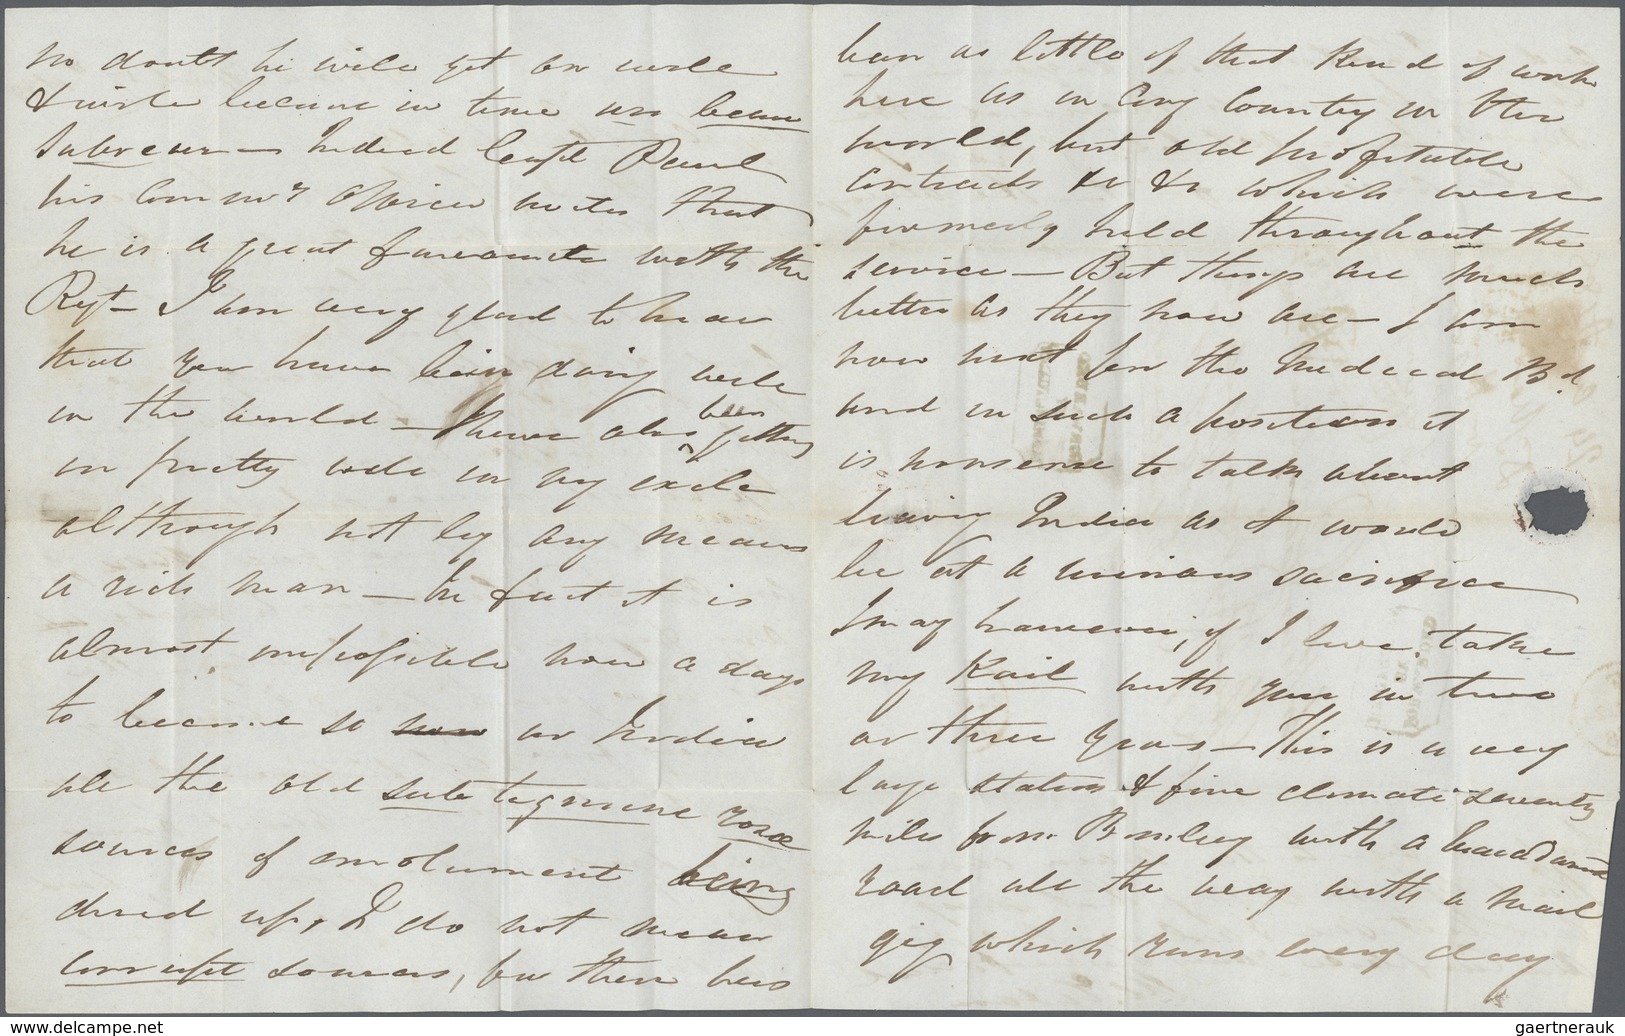 no doubt he will get on well
& will become in time un beau
Sabreur — Indeed Capt Paul
his Comm'g Officer writes that
he is a great favourite with the
Regt — I am very glad to hear
that you have being doing well
in the world — I have also been getting
on pretty well in my exile
although not by any means
a rich man — In fact it is
almost impossible now a days
to become so in India
all the old sub tegmine rosæ
sources of emolument being
dried up, I do not mean
corrupt sources, for there has
been as little of that kind of work
here as in any Country in the
world, but old profitable
contracts &c &c which were
formerly held throughout the
service — But things are much
better as they now are — I am
now next for the Medical Bd
and in such a position it
is nonsense to talk about
leaving India as it would
be at a ruinous sacrifice
I may however, if I live, take
my Kail with you in two
or three years — This is a very
large station & fine climate seventy
miles from Bombay with a macadamd
road all the way with a mail
gig which runs every day
gaertnerauk @ delcampe.net